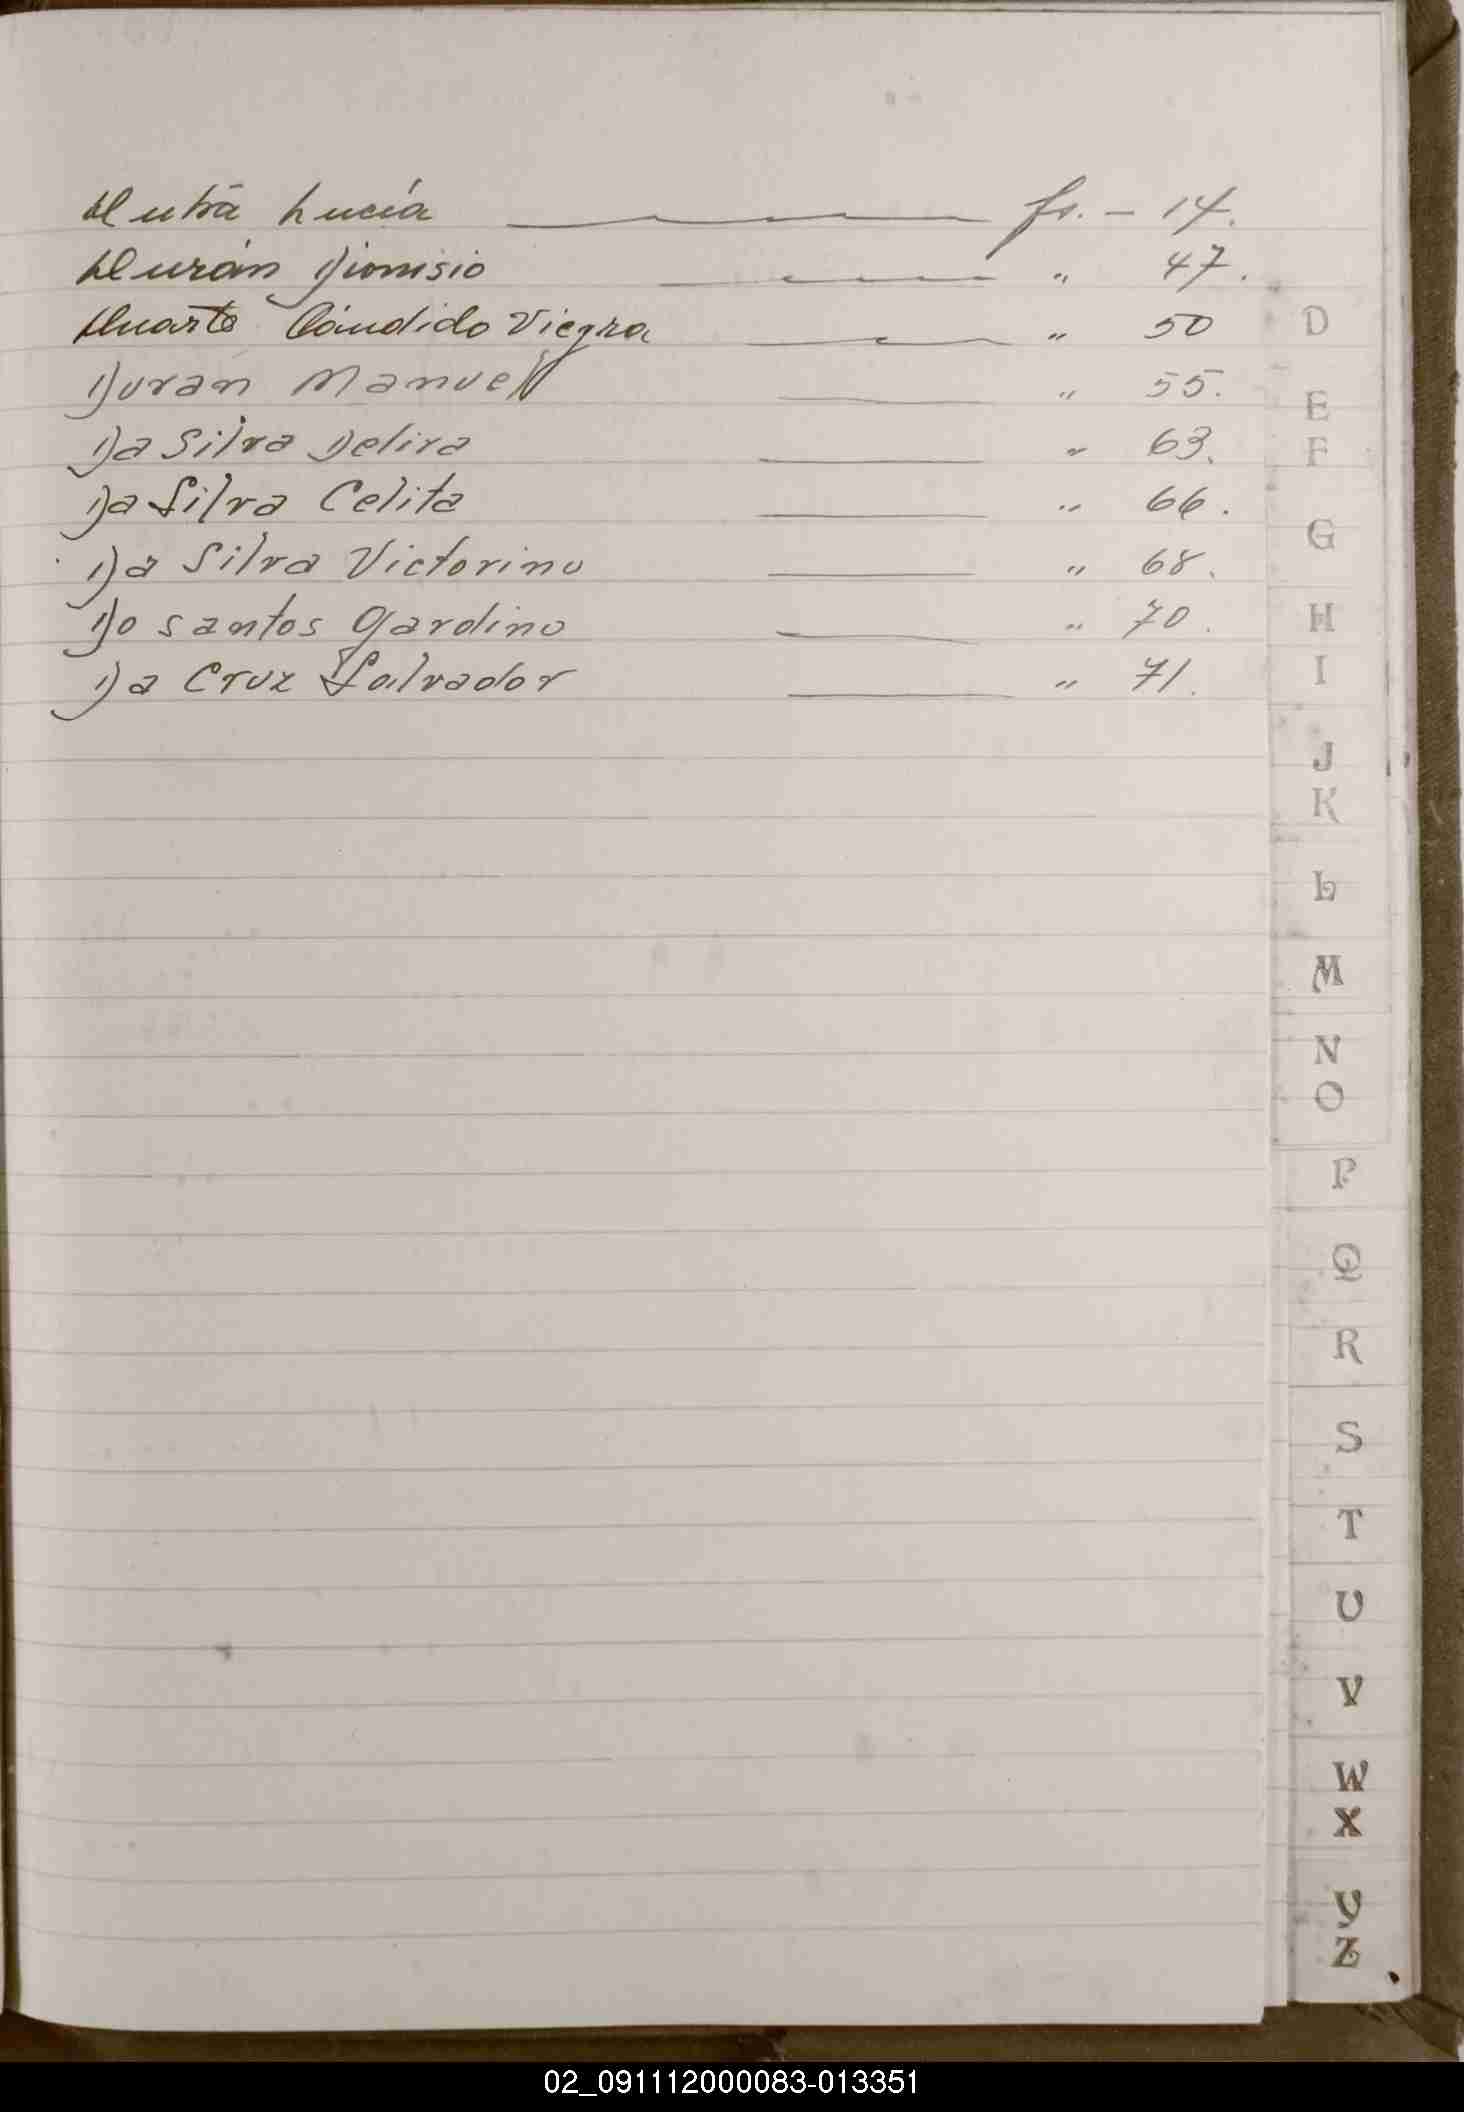 Dutrā Lucía fs. - 14.
Durán Dionisio " 47.
Duarte Cándido Viegra " 50
Duran Manuel " 55.
Da Silva Delira " 63.
Da Silva Celita " 66.
Da Silva Victorino " 68.
Do santos Gardino " 70.
Da Cruz Salvador " 71.
D
E
F
G
H
I
J
K
L
M
N
O
P
Q
R
S
T
U
V
W
X
Y
Z
02_091112000083-013351